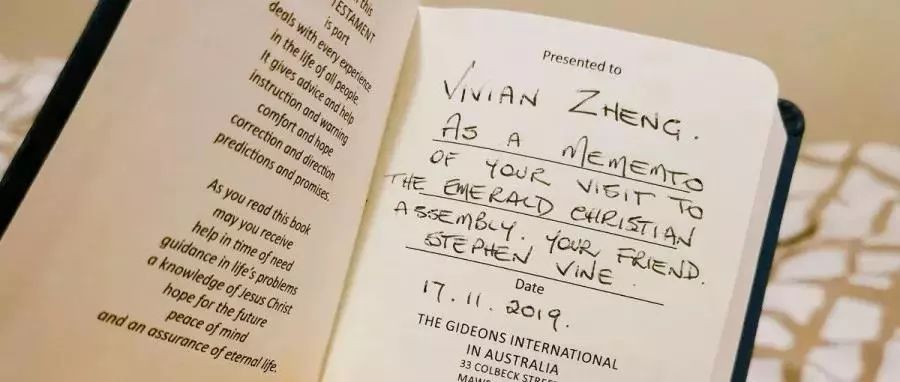 this
TESTAMENT
is part
deals with every experience
in the life of all people.
It gives advice and help
instruction and warning
comfort and hope
correction and direction
predictions and promises.
As you read this book
may you receive
help in time of need
guidance in life's problems
a knowledge of Jesus Christ
hope for the future
peace of mind
and an assurance of eternal life.
Presented to
VIVIAN ZHENG.
AS A MEMEMTO
OF YOUR VISIT TO
THE EMERALD CHRISTIAN
ASSEMBLY. YOUR FRIEND.
STEPHEN VINE.
Date
17.11.2019.
THE GIDEONS INTERNATIONAL
IN AUSTRALIA
33 COLBECK STREE
MAWS